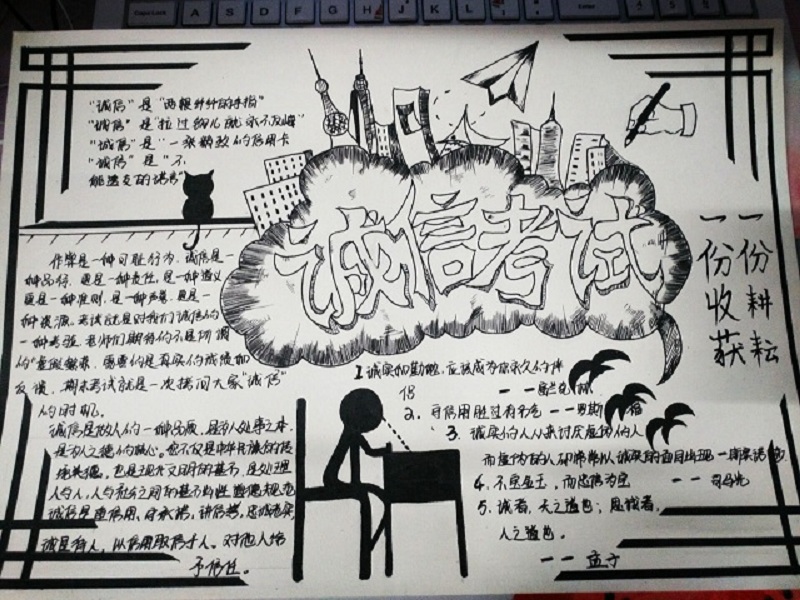 "诚信"是"两根外外的手指"
"诚信"是"拉过钩儿就永不反悔"
"诚信"是"一张的信用卡
"诚信"是"不
能透支的诺言"
诚信考试
一份耕耘
一份收获
作弊是一种可耻行为,诚信是一
种品行,更是一种责任,是一种道义
更是一种准则,是一种声誉,更是一
种资源。考试就是对我们诚信的
一种考验。老师们期待的不是所谓
的"",需要的是真实的成绩和
反馈,期末考试就是一次拷问大家"诚信"
的时机。
诚信是做人的一种品质,是为人处事之本
是为人之德的核心。它不仅是中华民族的传
统美德,也是现代文明的基石,是处理
人与人,人与社会之间的基本的道德规范
诚信是重信用、守承诺,讲信誉,忠诚老实
诚是待人,以信用取信于人。对他人给
予信任。
1.诚实和勤勉,应该成为你永久的伴
侣 ——富兰克林
2.守信用胜过有名气 ——罗斯福
3.诚实的人从来讨厌虚伪的人
而虚伪的人却常常以诚实的面目出现—斯宾诺莎
4.不宝金玉,而忠信为宝
5.诚者,天之道也;思诚者,
人之道也。
——孟子